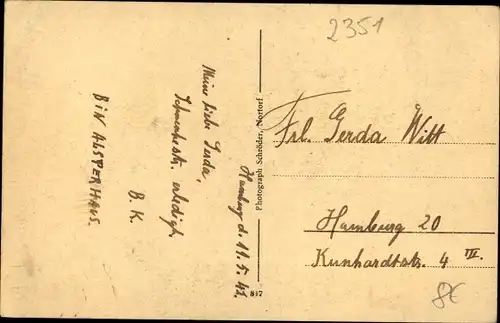 2351
Hamburg d. 11.5.42.
Meine liebe Gerda,
erledigt.
B.K.
BIN ALSTERHAUS.
Photograph Schröder, Nortorf
817
Frl. Gerda Witt
Hamburg 20
Kunhardtstr. 4 III.
8€